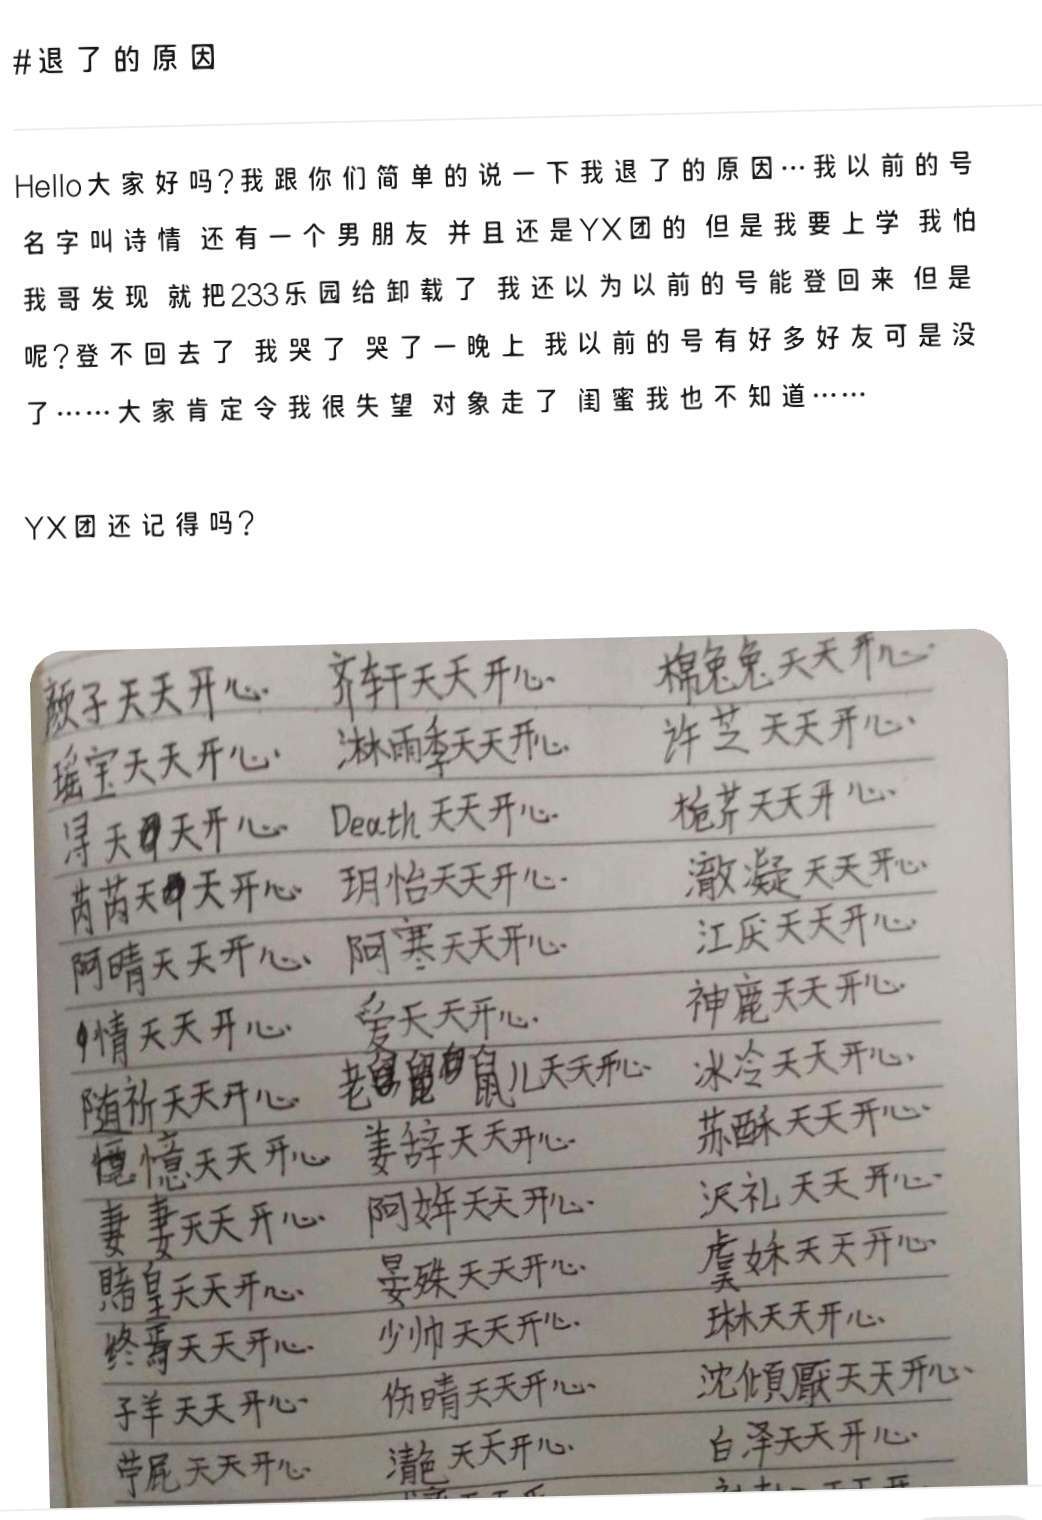 #退了的原因
Hello大家好吗?我跟你们简单的说一下我退了的原因…我以前的号
名字叫诗情 还有一个男朋友 并且还是YX团的 但是我要上学 我怕
我哥发现 就把233乐园给卸载了 我还以为以前的号能登回来 但是
呢?登不回去了 我哭了 哭了一晚上 我以前的号有好多好友可是没
了……大家肯定令我很失望 对象走了 闺蜜我也不知道……
YX团还记得吗?
颜子天天开心. 齐轩天天开心. 棉兔兔天天开心.
瑶宝天天开心. 淋雨季天天开心. 许芝天天开心.
浔天天开心. Death天天开心. 桅芹天天开心.
芮芮天天开心. 玥怡天天开心. 澈凝天天开心.
阿晴天天开心、 阿寒天天开心. 江厌天天开心.
情天天开心. 爱天天开心. 神鹿天天开心.
随祈天天开心. 老鼠儿天天开心. 冰冷天天开心.
憶天天开心. 姜辞天天开心. 苏酥天天开心.
妻妻天天开心. 阿姩天天开心. 沢礼天天开心.
賭皇天天开心. 晏殊天天开心. 虞妳天天开心.
终焉天天开心. 少帅天天开心. 琳天天开心.
子羊天天开心. 伤晴天天开心. 沈傾厭天天开心.
天天开心. 天天开心. 白泽天天开心.